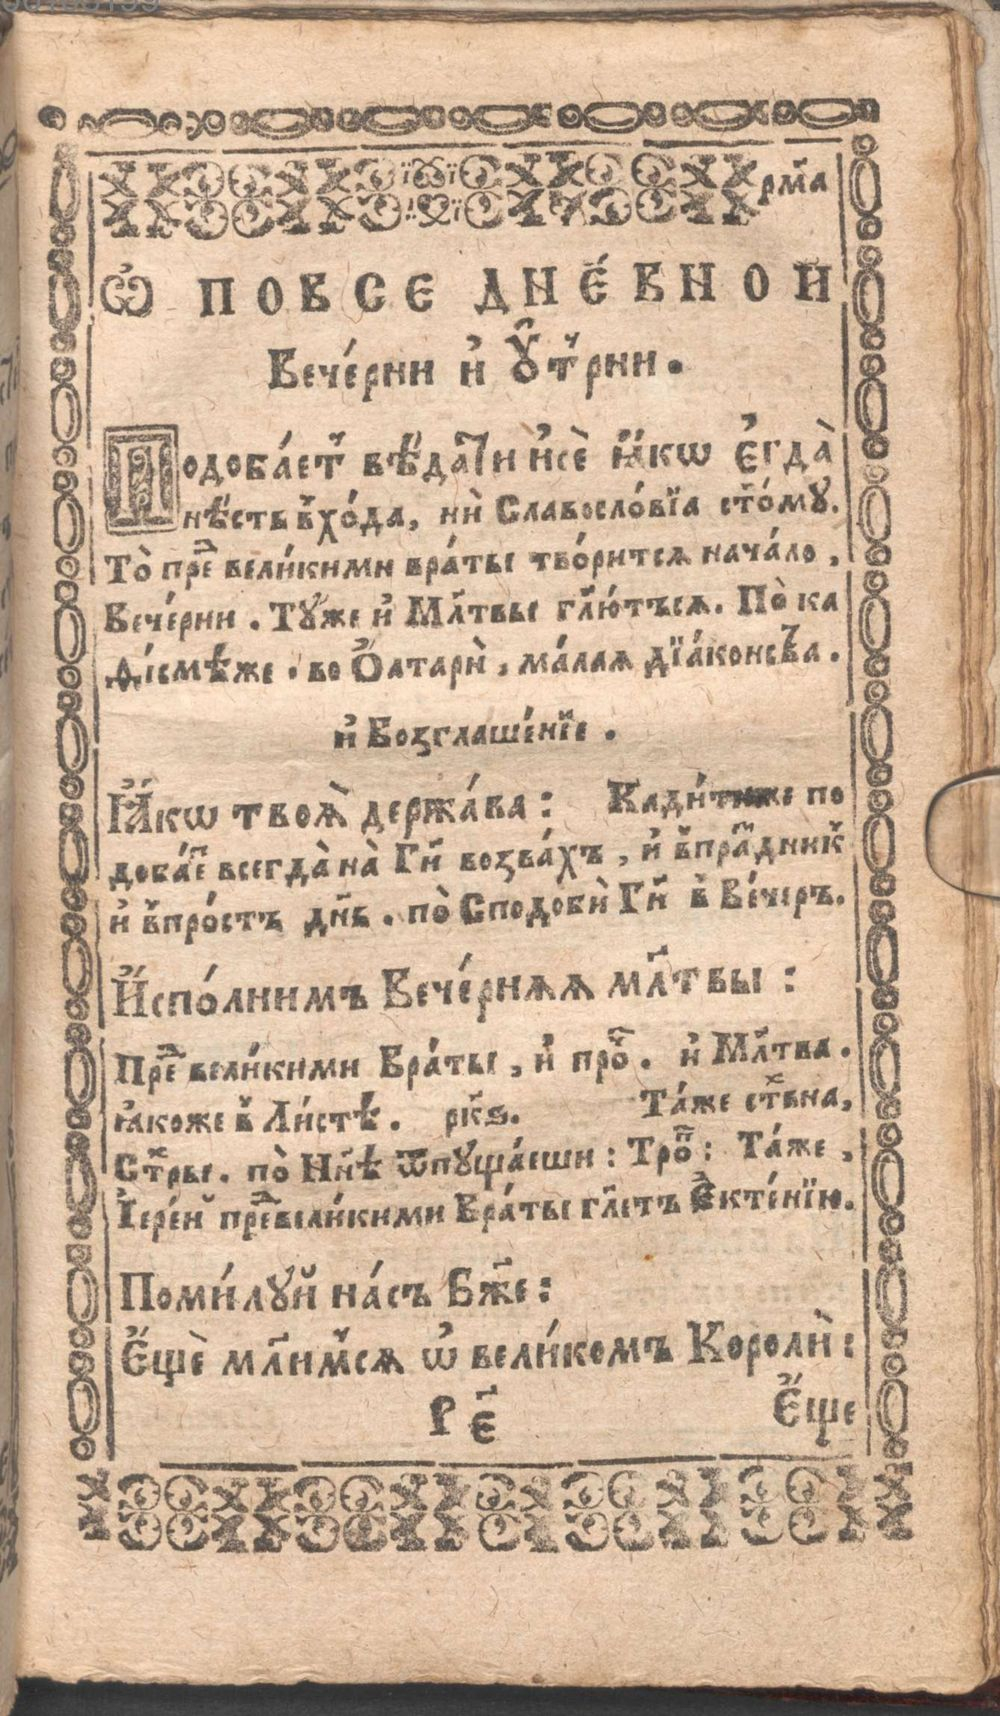 рм҃а
Ѡ҆ ПОВСЕ ДНЕ́ВНОЙ
Вече́рни и҆ Ѹ҆́т҆рни.
Подоба́ет҆ вѣ́дати и҆сѐ ꙗ҆́кѡ є҆гда̀
нѣ́сть в҆хо́да, нѝ Славосло́вїа ст҃о́мꙋ.
То̀ пред̾ вели́кими враты̀ тво́ритсѧ нача́ло,
Вече́рни. Тꙋ́же и҆ Мл҃твы гл҃ю́тъсѧ. По̀ ка
ѳі́смѣже. во Ѻ҆лтарѝ, ма́лаѧ дїа́конства.
и҆ Возглаше́нїе.
Ꙗ҆́кѡ твоѧ̀ держа́ва: Кади́тиже по
доба́ет всегда̀ на̀ Гд҃и возва́хъ, и҆ в҆пра́здник҆
и҆ в҆про́стъ дн҃ь. по̀ Сподобѝ Гд҃и в҆ Ве́черъ.
И҆спо́лнимъ Вече́рнѧѧ мл҃твы:
Пред̾ вели́кими Вра́ты, и҆ про́ч. и҆ Мл҃тва.
ꙗ҆́коже в҆ Ли́стѣ. рк҃ѕ. Та́же стхв҃на,
Стхр҃ы. по̀ Нн҃ѣ ѿпꙋща́еши: Троп҃: Та́же,
І҆ере́й пред̾вели́кими Вра́ты гл҃етъ Є҆кте́нїю.
Поми́лꙋй на́съ Бж҃е:
Є҆щѐ мл҃им҆сѧ ѡ҆ вели́комъ Королѝ:
Р Є҃ Є҆́ще